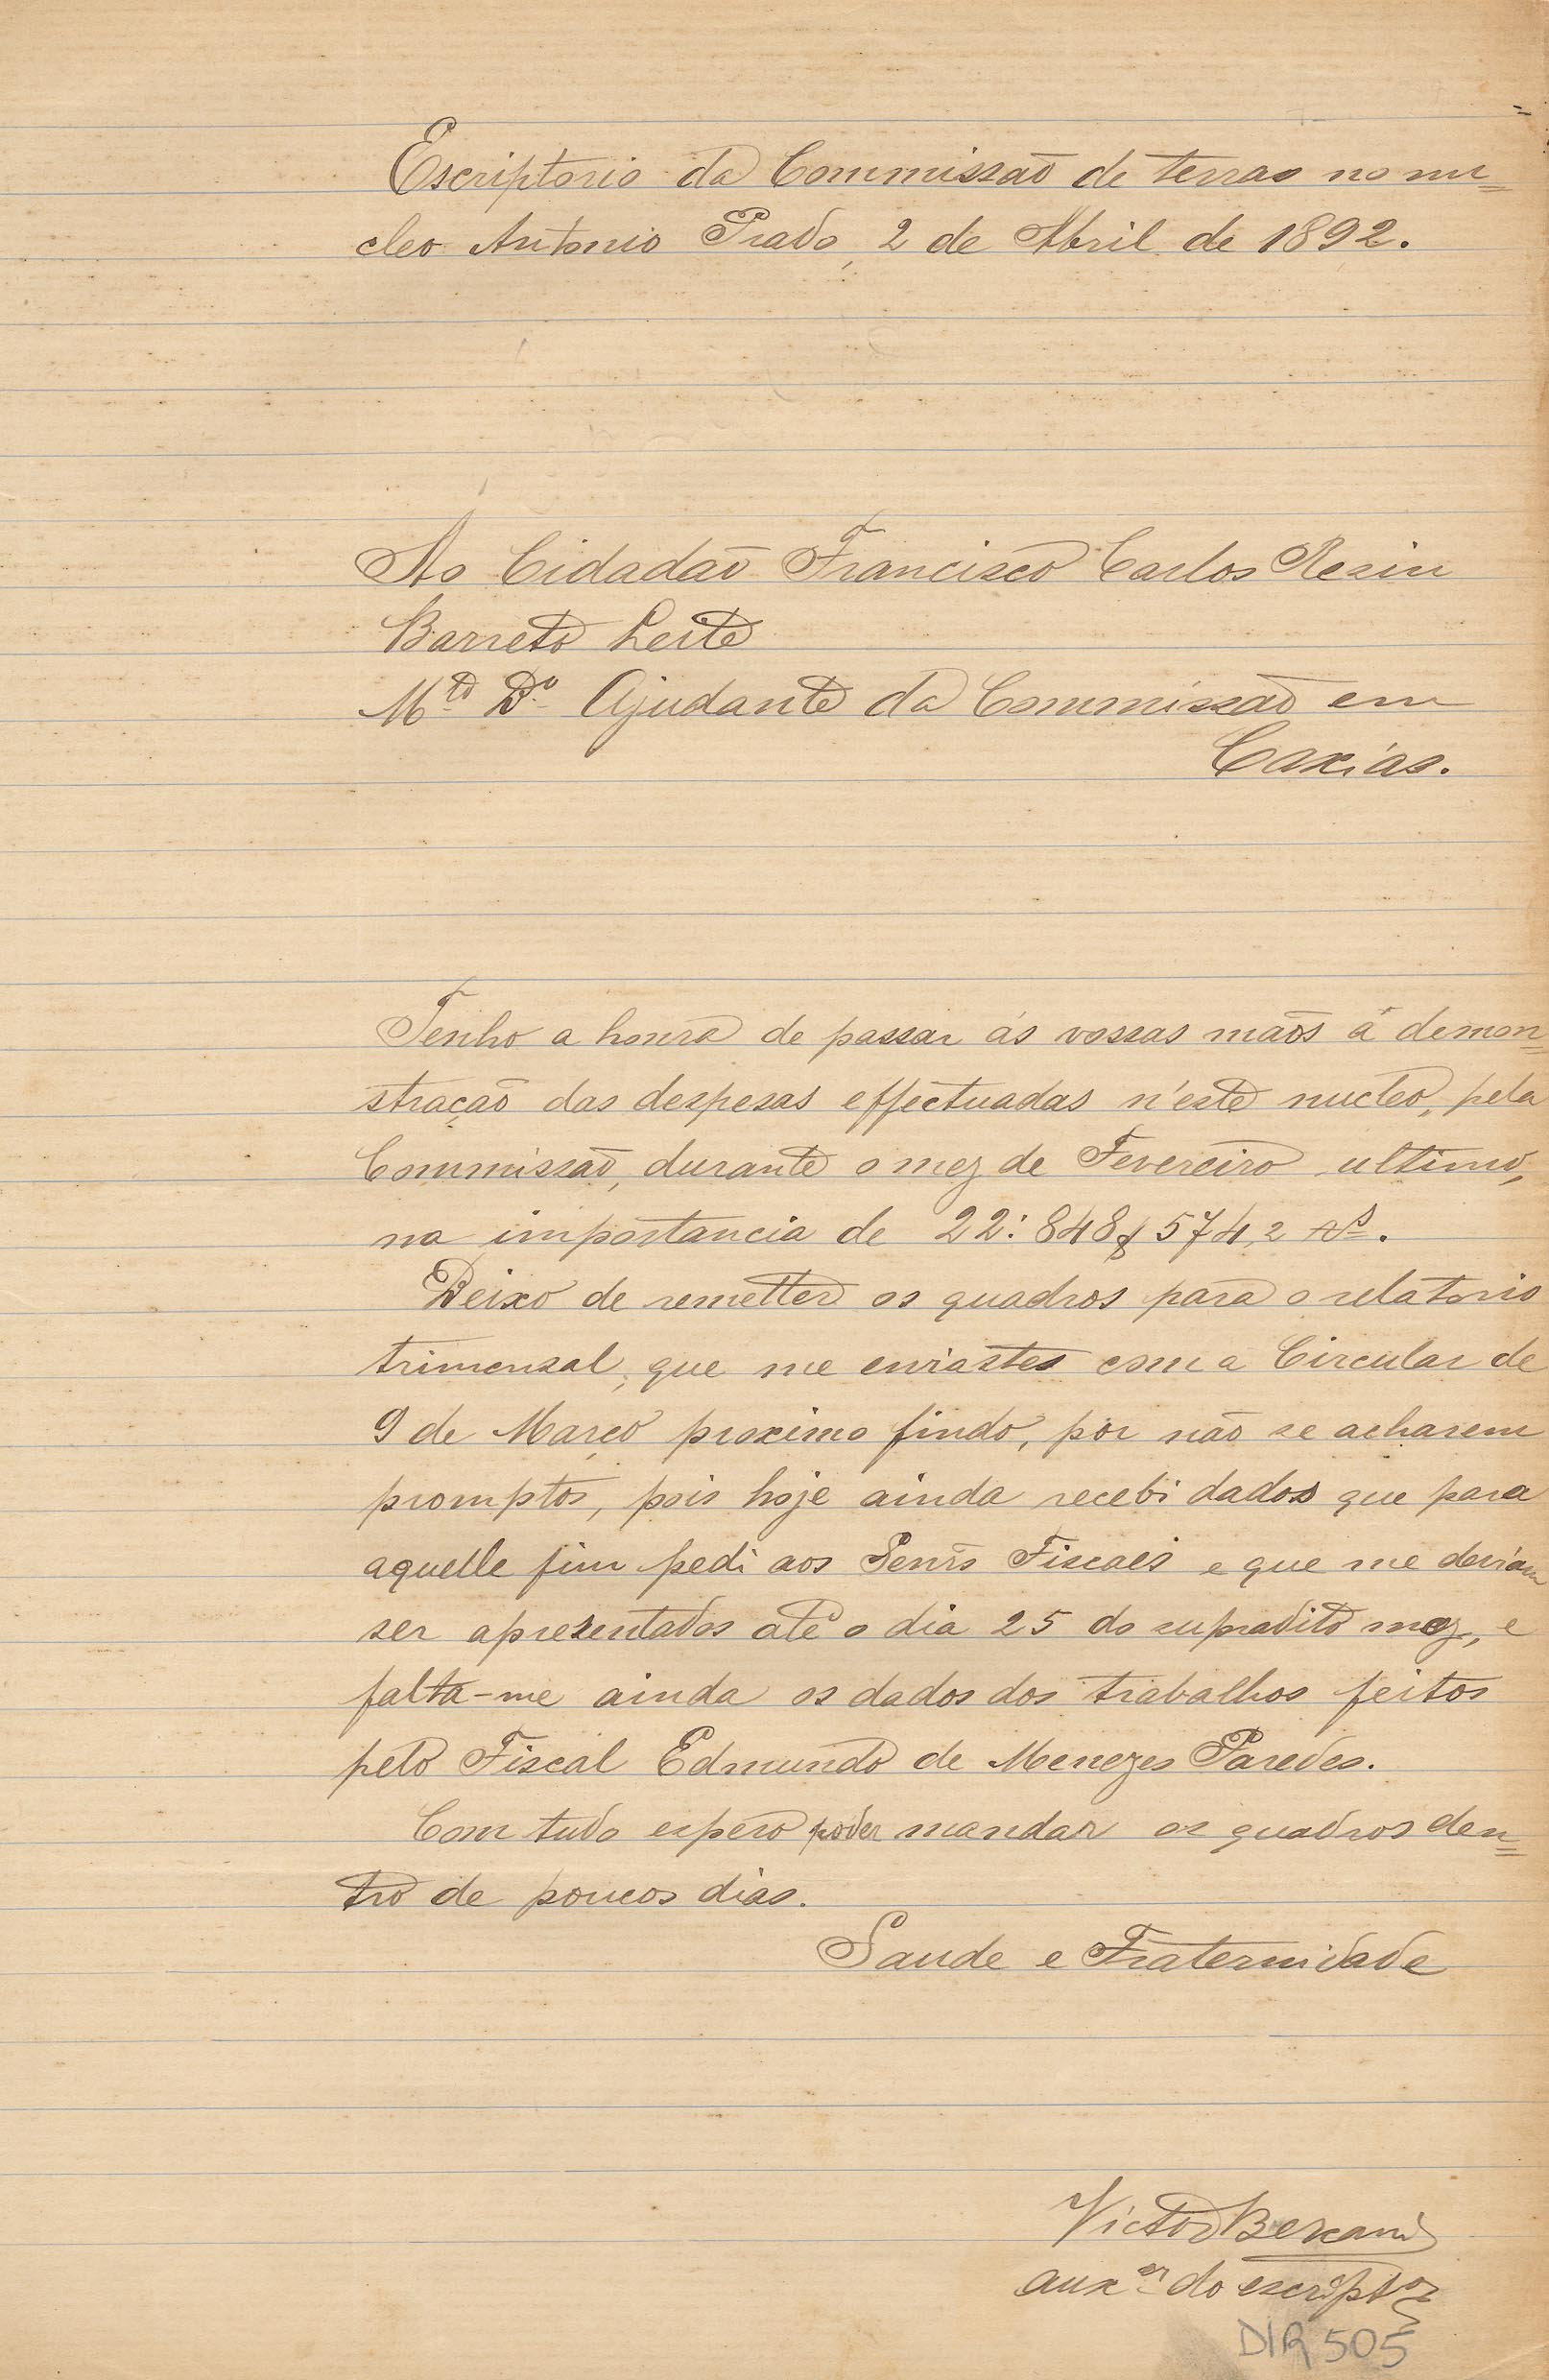 Escriptorio da Commissão de terras no nu=
cleo Antonio Prado, 2 de Abril de 1892.
Ao Cidadão Francisco Carlos Resin
Barreto Leite
M.to D.o Ajudante da Commissão em
Caxias.
Tenho a honra de passar ás vossas mãos á demon=
stração das despesas effectuadas n'este nucleo, pela
Commissão, durante o mez de Fevereiro ultimo,
na importancia de 22:848$574,2 rs.
Deixo de remetter os quadros para o relatorio
trimensal, que me enviastes com a Circular de
9 de Março proximo findo, por não se acharem
promptos, pois hoje ainda recebi dados que para
aquelle fim pedi aos Senrs Fiscaes e que me deviam
ser apresentados até o dia 25 do supradito mez, e
falta-me ainda os dados dos trabalhos feitos
pelo Fiscal Edmundo de Menezes Paredes.
Com tudo espero poder mandar os quadros den=
tro de poucos dias.
Saude e Fraternidade
Victor
aux.er do escript.o
DIR 505